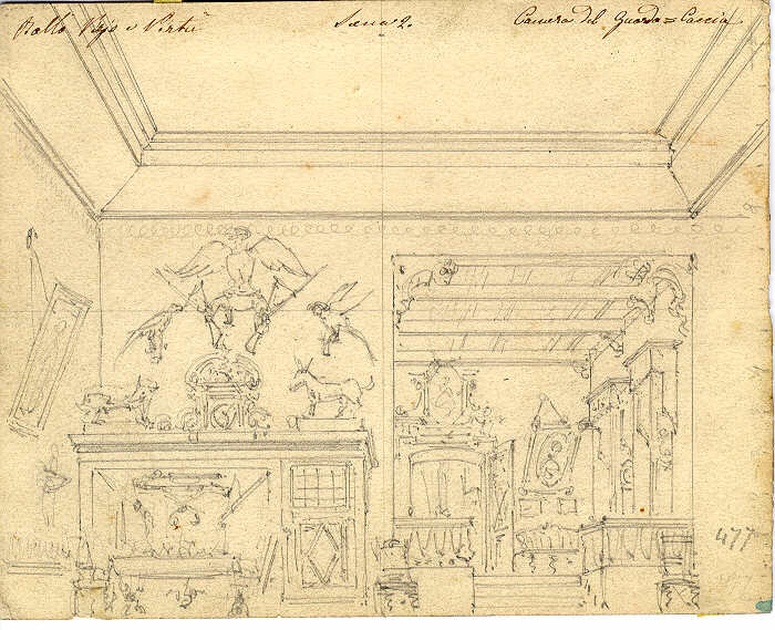 Ballo Vizio e Virtù Scena 2. Camera del Guarda=Caccia
8
477